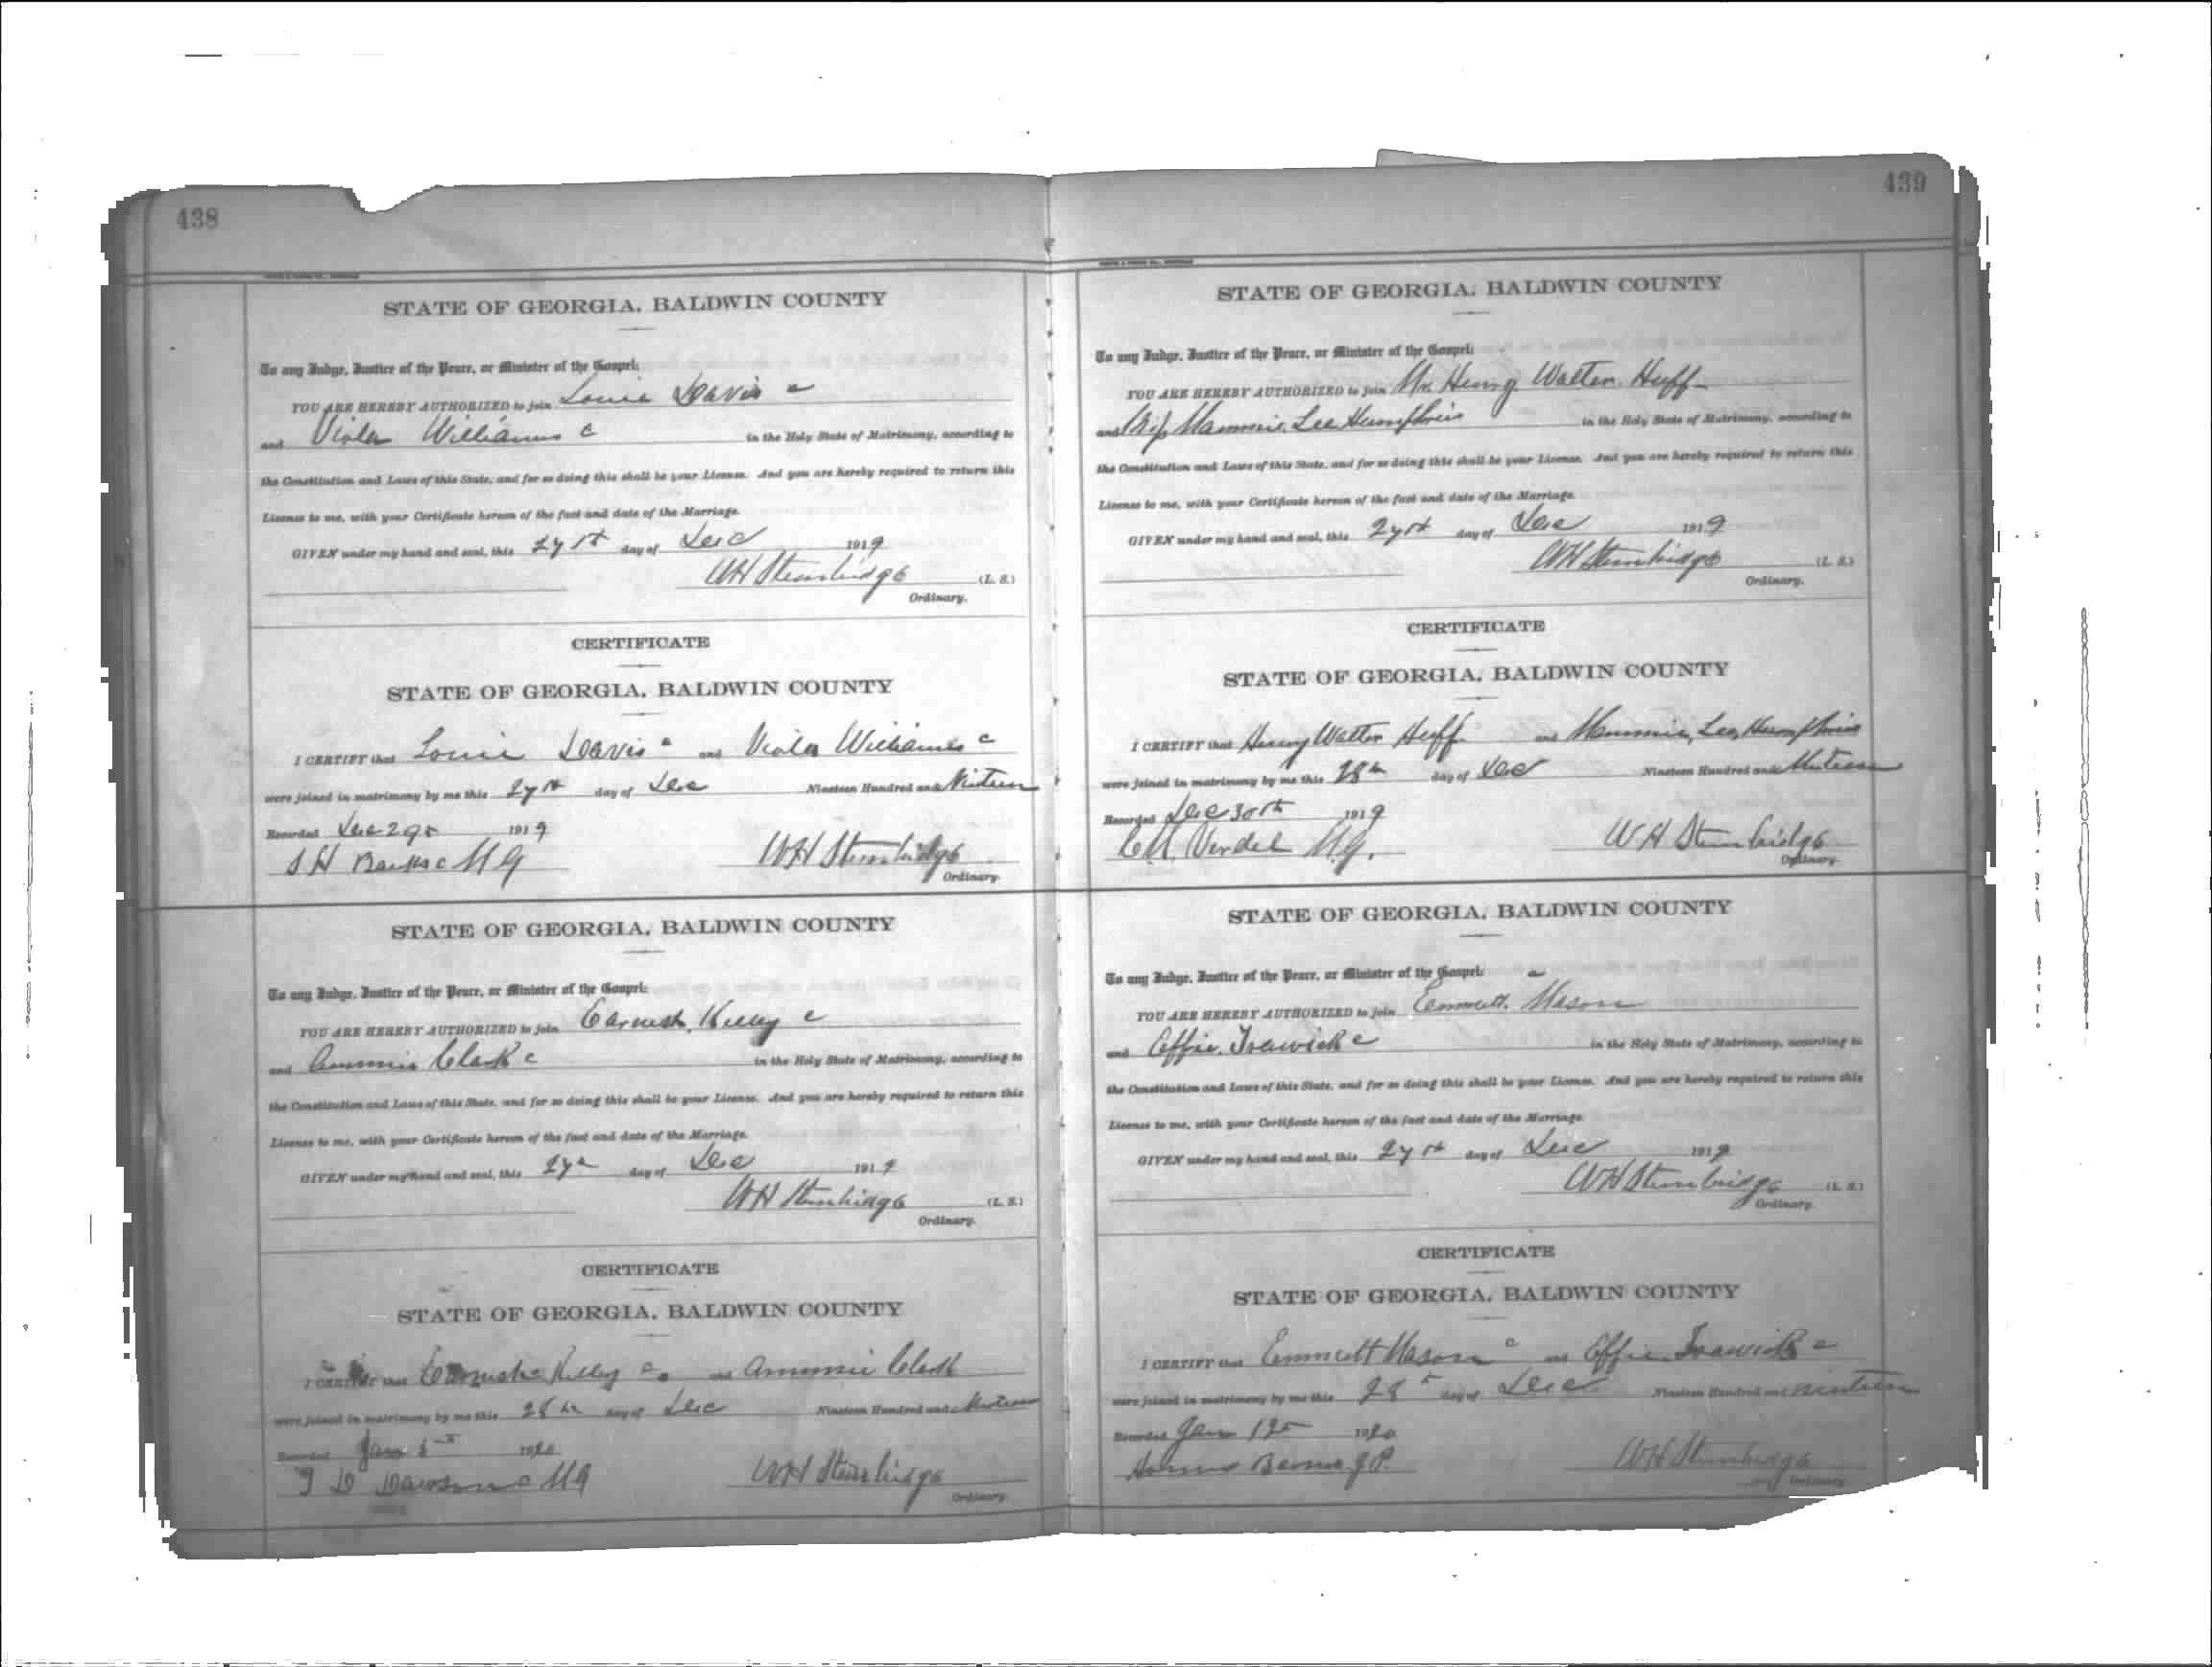 438
STATE OF GEORGIA, BALDWIN COUNTY
To any Judge, Justice of the Peace, or Minister of the Gospel:
YOU ARE HEREBY AUTHORIZED to join Louie Davis c
and Viola Williams c in the Holy State of Matrimony, according to
the Constitution and Laws of this State, and for so doing this shall be your License. And you are hereby required to return this
License to me, with your Certificate hereon of the fact and date of the Marriage.
GIVEN under my hand and seal, this 27th day of Dec 1919
WH Stembridge (L. S.)
Ordinary.
CERTIFICATE
STATE OF GEORGIA, BALDWIN COUNTY
I CERTIFY that Louie Davis c and Viola Williams c
were joined in matrimony by me this 27th day of Dec Nineteen Hundred and
Recorded Dec 29 1919
MG WH Stembridge
Ordinary.
STATE OF GEORGIA, BALDWIN COUNTY
To any Judge, Justice of the Peace, or Minister of the Gospel:
YOU ARE HEREBY AUTHORIZED to join Earnest Kelley c
and Ammie Clark c in the Holy State of Matrimony, according to
the Constitution and Laws of this State, and for so doing this shall be your License. And you are hereby required to return this
License to me, with your Certificate hereon of the fact and date of the Marriage.
GIVEN under my hand and seal, this 27 day of Dec 1919
WH Stembridge (L. S.)
Ordinary.
CERTIFICATE
STATE OF GEORGIA, BALDWIN COUNTY
I CERTIFY that Kelley c and Ammie Clark
were joined in matrimony by me this 28th day of Dec Nineteen Hundred and
Recorded Jan 1920
Dawson c MG WH Stembridge
Ordinary.
439
STATE OF GEORGIA, BALDWIN COUNTY
To any Judge, Justice of the Peace, or Minister of the Gospel:
YOU ARE HEREBY AUTHORIZED to join Mr. Henry Walter Huff
and Miss Mammie Lee Humphries in the Holy State of Matrimony, according to
the Constitution and Laws of this State, and for so doing this shall be your License. And you are hereby required to return this
License to me, with your Certificate hereon of the fact and date of the Marriage.
GIVEN under my hand and seal, this 27th day of Dec 1919
WH Stembridge (L. S.)
Ordinary.
CERTIFICATE
STATE OF GEORGIA, BALDWIN COUNTY
I CERTIFY that Henry Walter Huff and Mammie Lee Humphries
were joined in matrimony by me this 28th day of Dec Nineteen Hundred and
Recorded Dec 30th 1919
Verdel M.G. WH Stembridge
Ordinary.
STATE OF GEORGIA, BALDWIN COUNTY
To any Judge, Justice of the Peace, or Minister of the Gospel: c
YOU ARE HEREBY AUTHORIZED to join Emmett Mason
and Effie Trawick c in the Holy State of Matrimony, according to
the Constitution and Laws of this State, and for so doing this shall be your License. And you are hereby required to return this
License to me, with your Certificate hereon of the fact and date of the Marriage.
GIVEN under my hand and seal, this 27th day of Dec 1919
WH Stembridge (L. S.)
Ordinary.
CERTIFICATE
STATE OF GEORGIA, BALDWIN COUNTY
I CERTIFY that Emmett Mason c and Effie Trawick c
were joined in matrimony by me this 28 day of Dec Nineteen Hundred and nineteen
Recorded Jan 1920
J.P. WH Stembridge
Ordinary.